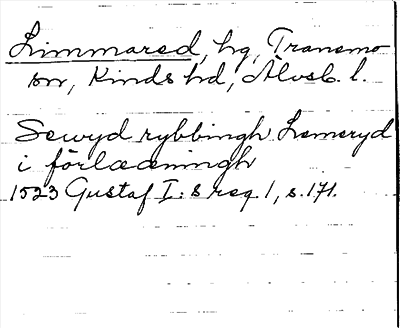 Limmared, hg, Tranemo
sn, Kinds hd, Älvsb. l.
Sewyd rybbingh Lemeryd
i förlææningh
1523 Gustaf I:s reg. 1, s. 171.